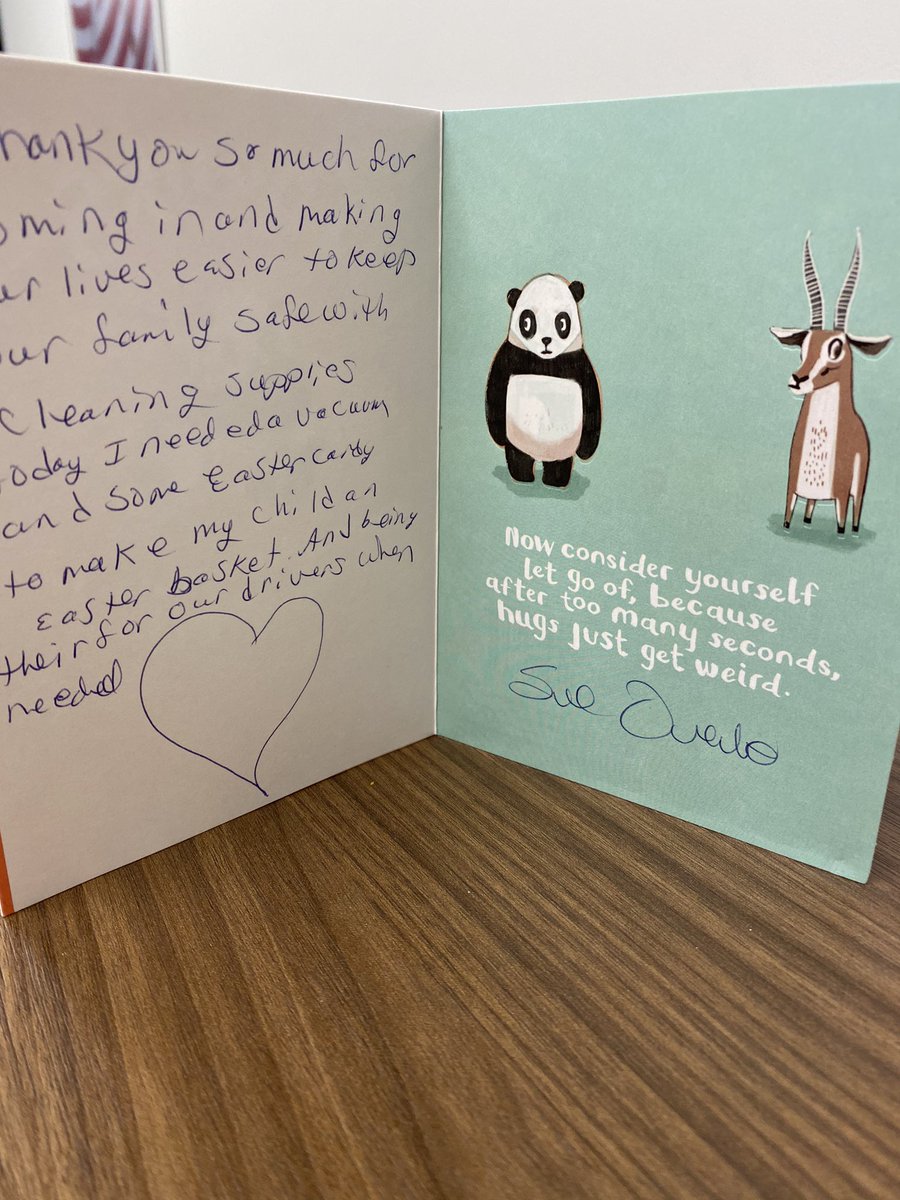 hank you so much for
oming in and making
ur lives easier to keep
our family safe with
Cleaning supplies
today I needed a vacuum
and some Easter candy
to make my child an
Easter basket. And being
their for our drivers when
needed
Now consider yourself
let go of, because
after too many seconds,
hugs just get weird.
Sue